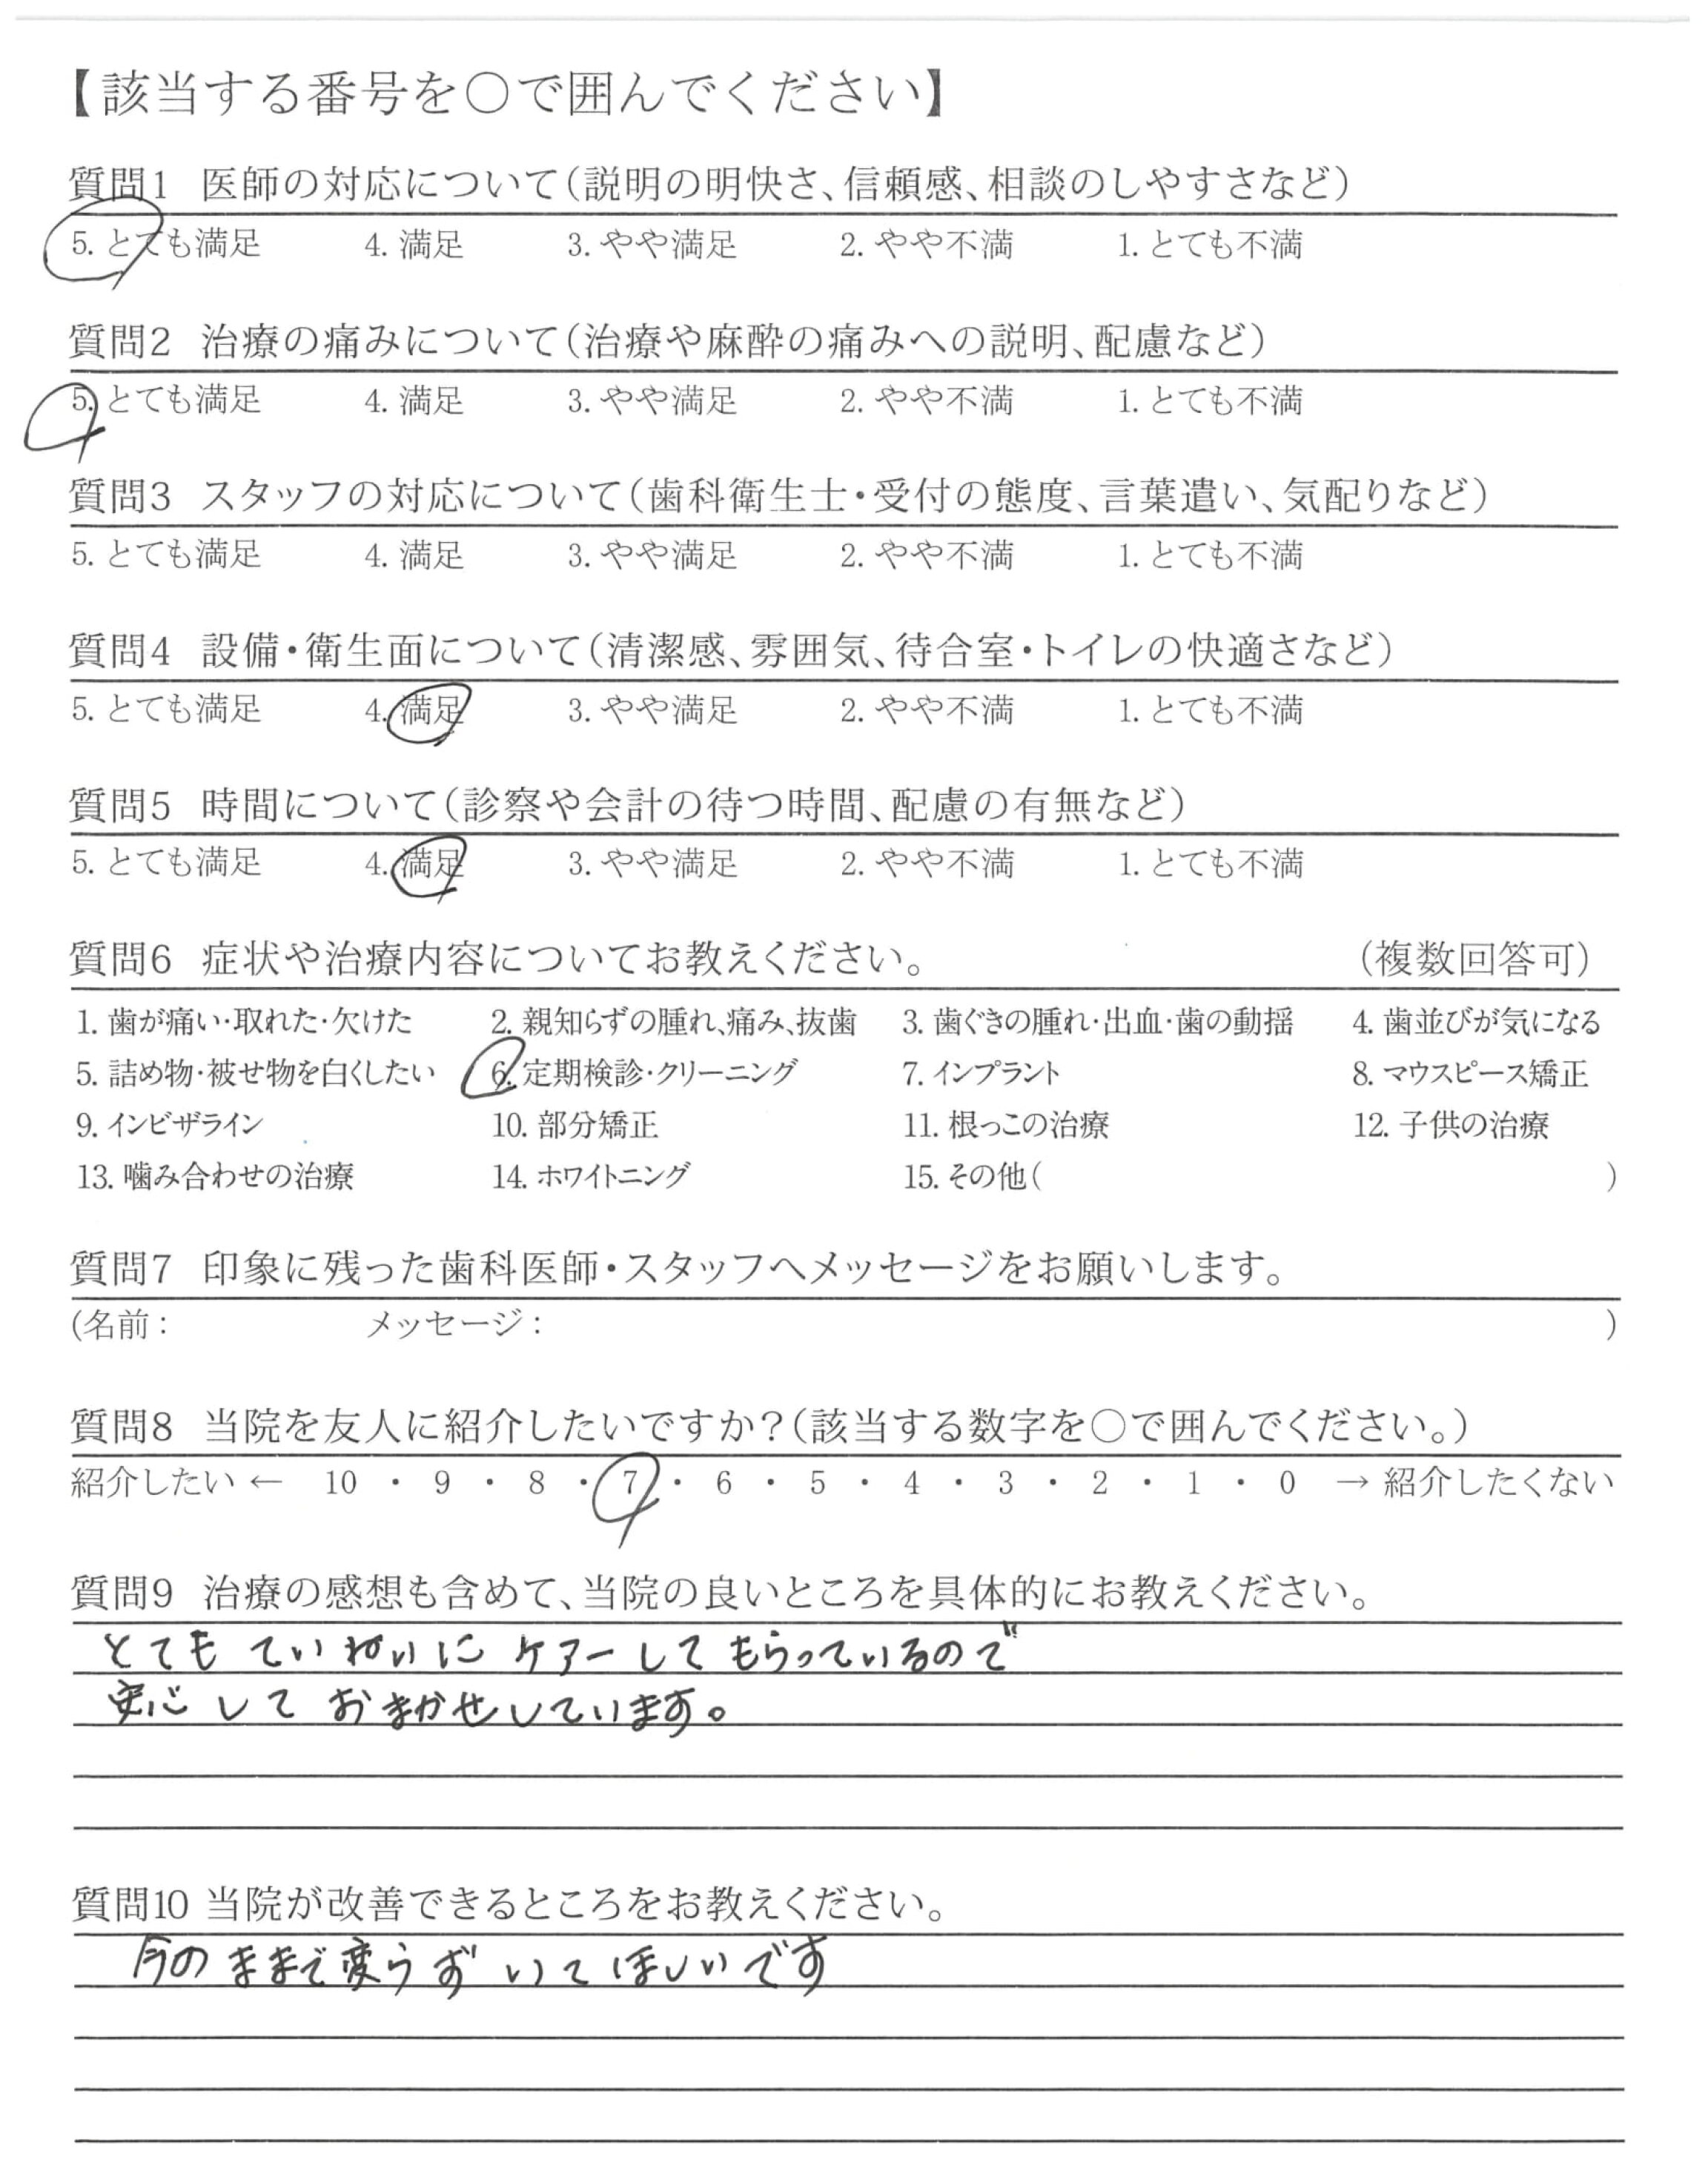 【該当する番号を○で囲んでください】
質問1 医師の対応について(説明の明快さ、信頼感、相談のしやすさなど)
5. とても満足 4. 満足 3. やや満足 2. やや不満 1. とても不満
質問2 治療の痛みについて(治療や麻酔の痛みへの説明、配慮など)
5. とても満足 4. 満足 3. やや満足 2. やや不満 1. とても不満
質問3 スタッフの対応について(歯科衛生士・受付の態度、言葉遣い、気配りなど)
5. とても満足 4. 満足 3. やや満足 2. やや不満 1. とても不満
質問4 設備・衛生面について(清潔感、雰囲気、待合室・トイレの快適さなど)
5. とても満足 4. 満足 3. やや満足 2. やや不満 1. とても不満
質問5 時間について(診察や会計の待つ時間、配慮の有無など)
5. とても満足 4. 満足 3. やや満足 2. やや不満 1. とても不満
質問6 症状や治療内容についてお教えください。 (複数回答可)
1. 歯が痛い・取れた・欠けた 2. 親知らずの腫れ、痛み、抜歯 3. 歯ぐきの腫れ・出血・歯の動揺 4. 歯並びが気になる
5. 詰め物・被せ物を白くしたい 6. 定期検診・クリーニング 7. インプラント 8. マウスピース矯正
9. インビザライン 10. 部分矯正 11. 根っこの治療 12. 子供の治療
13. 噛み合わせの治療 14. ホワイトニング 15. その他( )
質問7 印象に残った歯科医師・スタッフへメッセージをお願いします。
(名前: メッセージ: )
質問8 当院を友人に紹介したいですか?(該当する数字を○で囲んでください。)
紹介したい ← 10 ・ 9 ・ 8 ・ 7 ・ 6 ・ 5 ・ 4 ・ 3 ・ 2 ・ 1 ・ 0 → 紹介したくない
質問9 治療の感想も含めて、当院の良いところを具体的にお教えください。
とても ていねいに ケアーして もらっているので
安心 して おまかせしています。
質問10 当院が改善できるところをお教えください。
今の ままで 変らず いて ほしいです